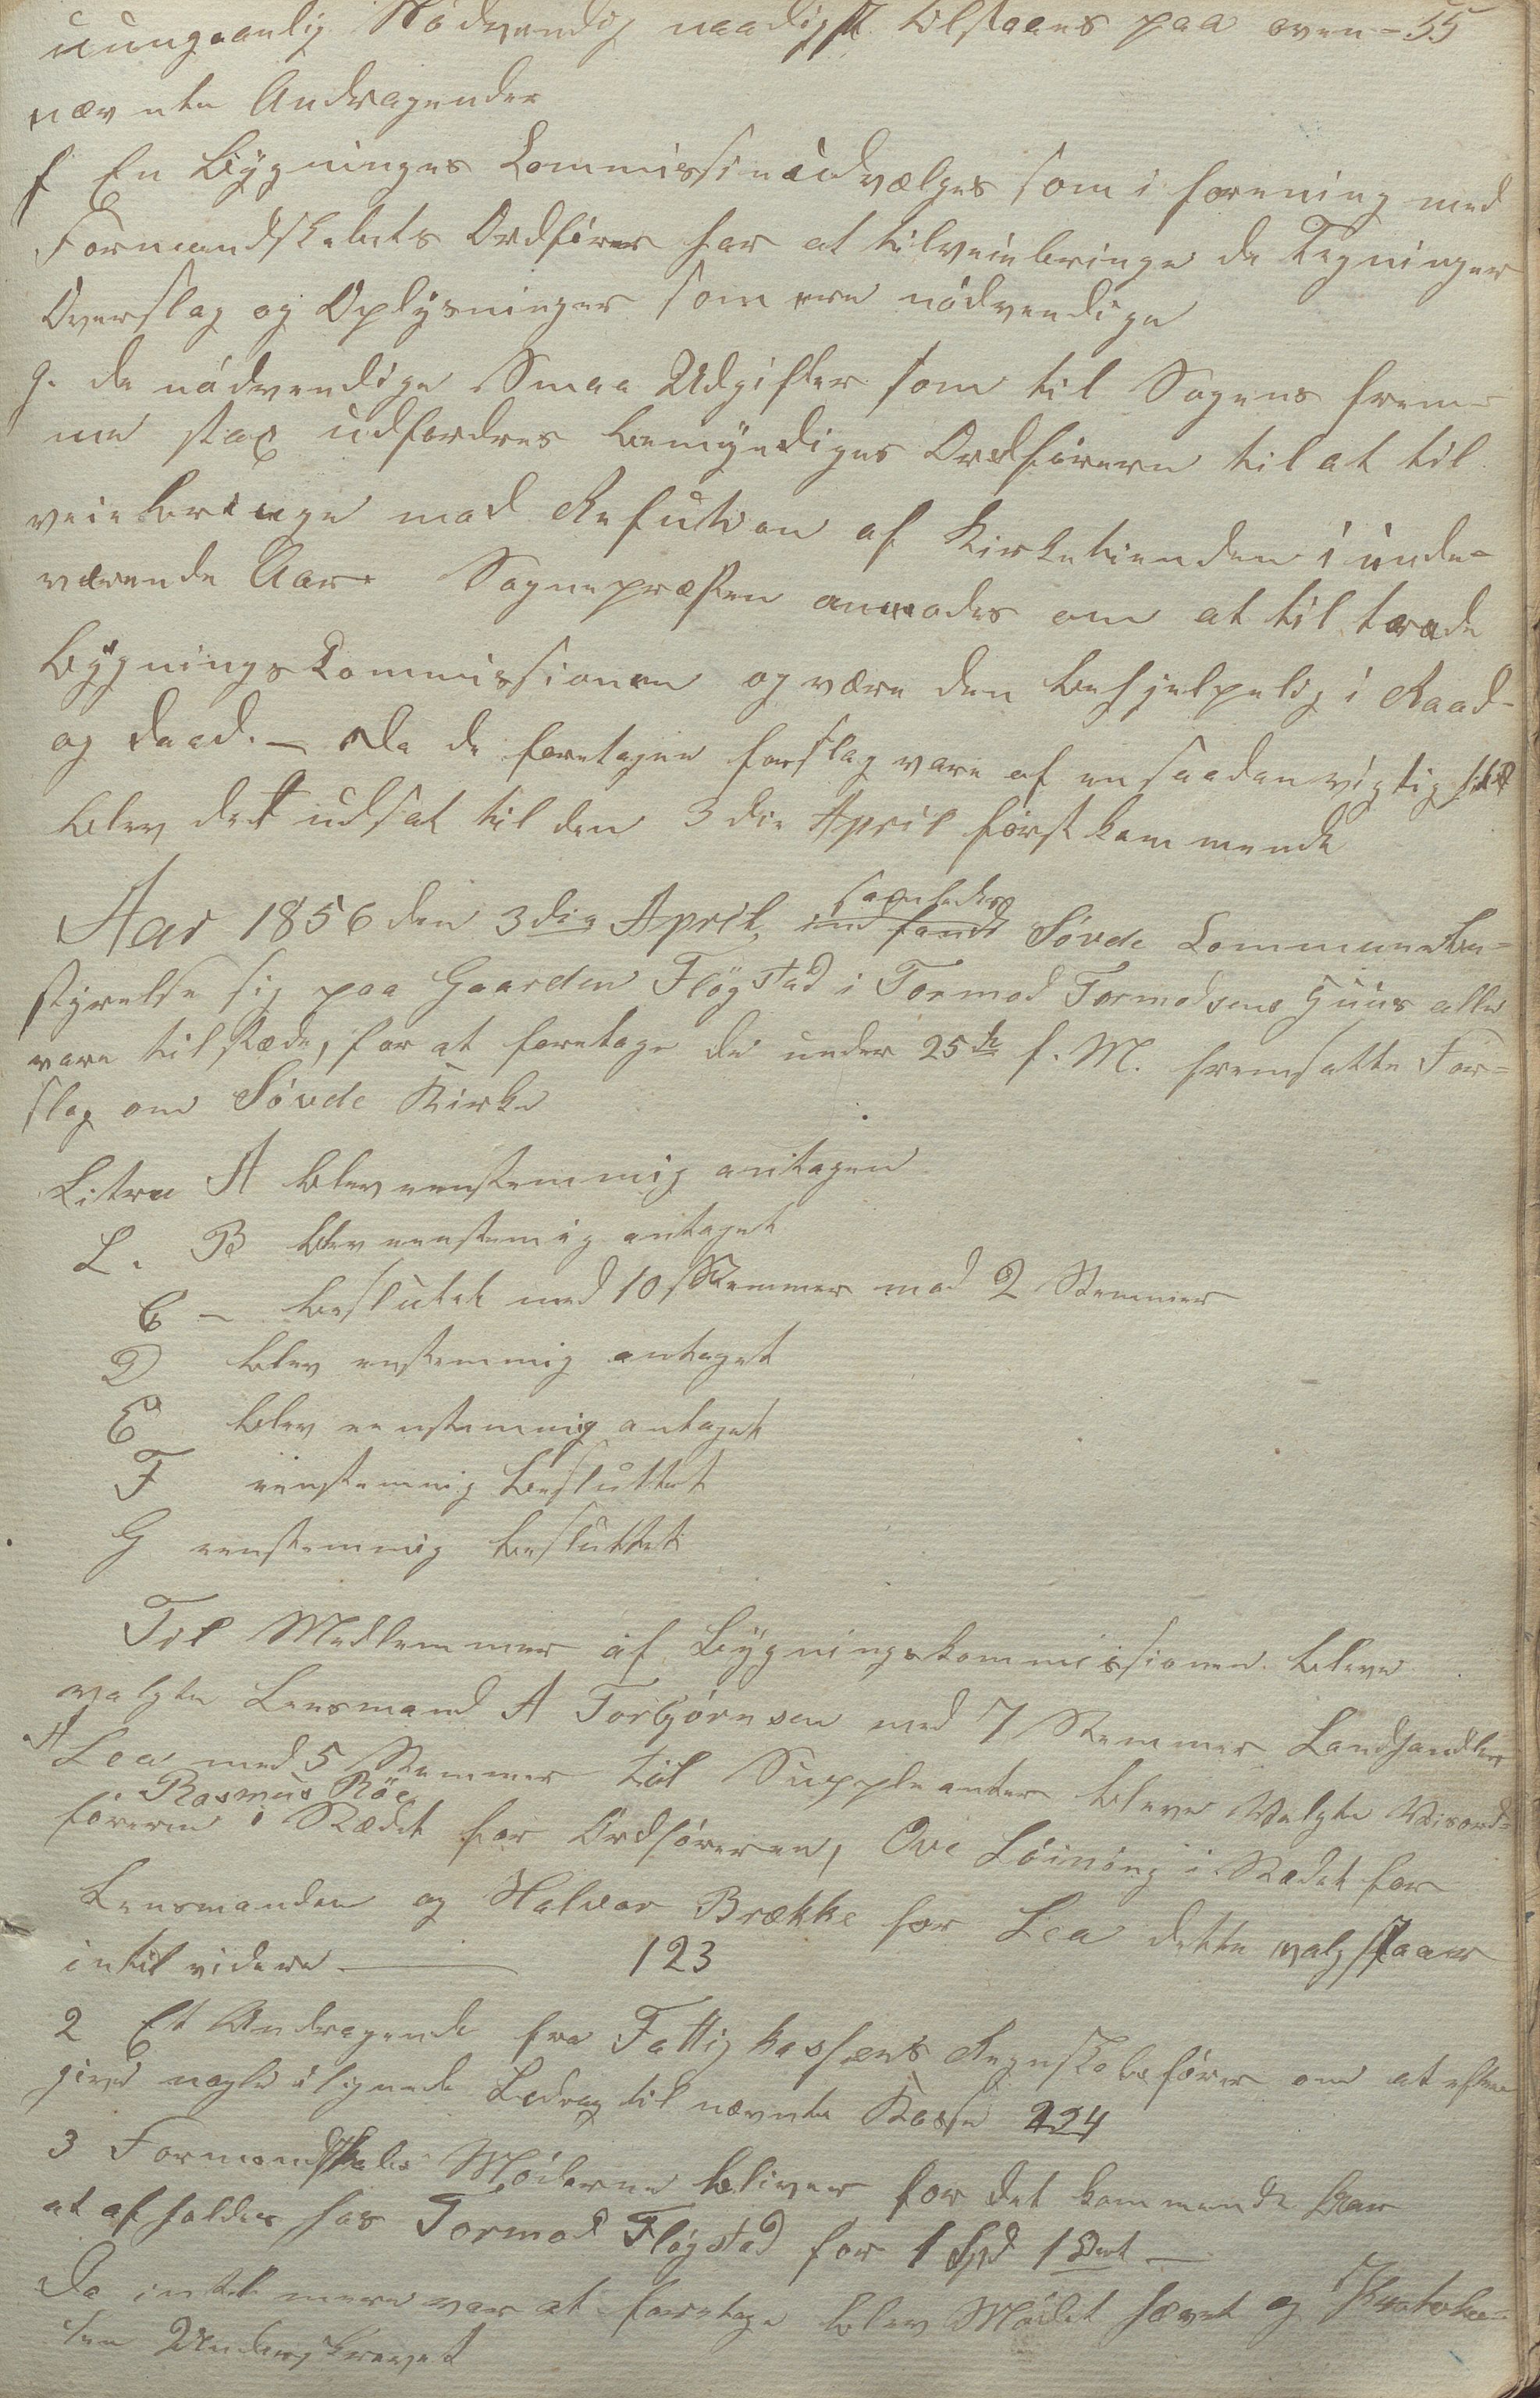 uungaanlig Nødvendig naadigst tilstaaes paa oven- 55
nævnte Andragender
f En Bygnings Commission udvælges som i forening med
Formandskabets Ordfører har at tilveiebringe de Tegninger
Overslag og Oplysninger som ere nødvendige
g. de nødvendige Smaa Udgifter som til Sagens frem-
me strax udfordres bemyndiges Ordføreren til at til
veiebringe mod Refution af Kirketienden i inde-
værende Aar. Sognepræsten anmodes om at tiltræde
Bygnings Commissionen og være den behjelpelig i Raad
og daad. — Da de foretagne forslag vare af en saadan vigtighed
blev det udsat til den 3die April førstkommende
Aar 1856 den 3die April ind fandt samledes Søvde Communebe-
styrelse sig paa Gaarden Fløgstad i Tormod Tormodsens Huus alle
vare tilstæde, for at foretage de under 25de f. M. fremsatte For-
slag om Søvde Kirke
Litra A blev eenstemmig antagen
L. B blev eenstemig antaget
C — besluttet med 10 Stemmer mod 2 Stemmer
D blev enstemmig antaget
E blev eenstemmig antaget
F eenstemmig besluttet
G eenstemmig besluttet
Til Medlemmer af Bygningskommissionen bleve
valgte Lensmand A Torbjørnsen med 7 Stemmer Landhandler
A Lea med 5 Stemmer til Suppleanter bleve Valgte Viseord-
føreren Rasmus Røe i Stædet for Ordføreren, Ove Løining i Stædet for
Lensmanden og Halvor Brække for Lea dette valg staaer
intil videre — 123
2 Et Andragende fra Fattigkassens Regnskabsfører om at efter
give nogle ulignede Bedrag til nævnte Kasse 224
3 Formandskabs Møderne bliver for det kommende Aar
at afholdes hos Tormod Fløgstad for 1 Spd 1 Ort —
Da intet mere var at foretage blev Mødet hævet og Protokol-
len Underskrevet